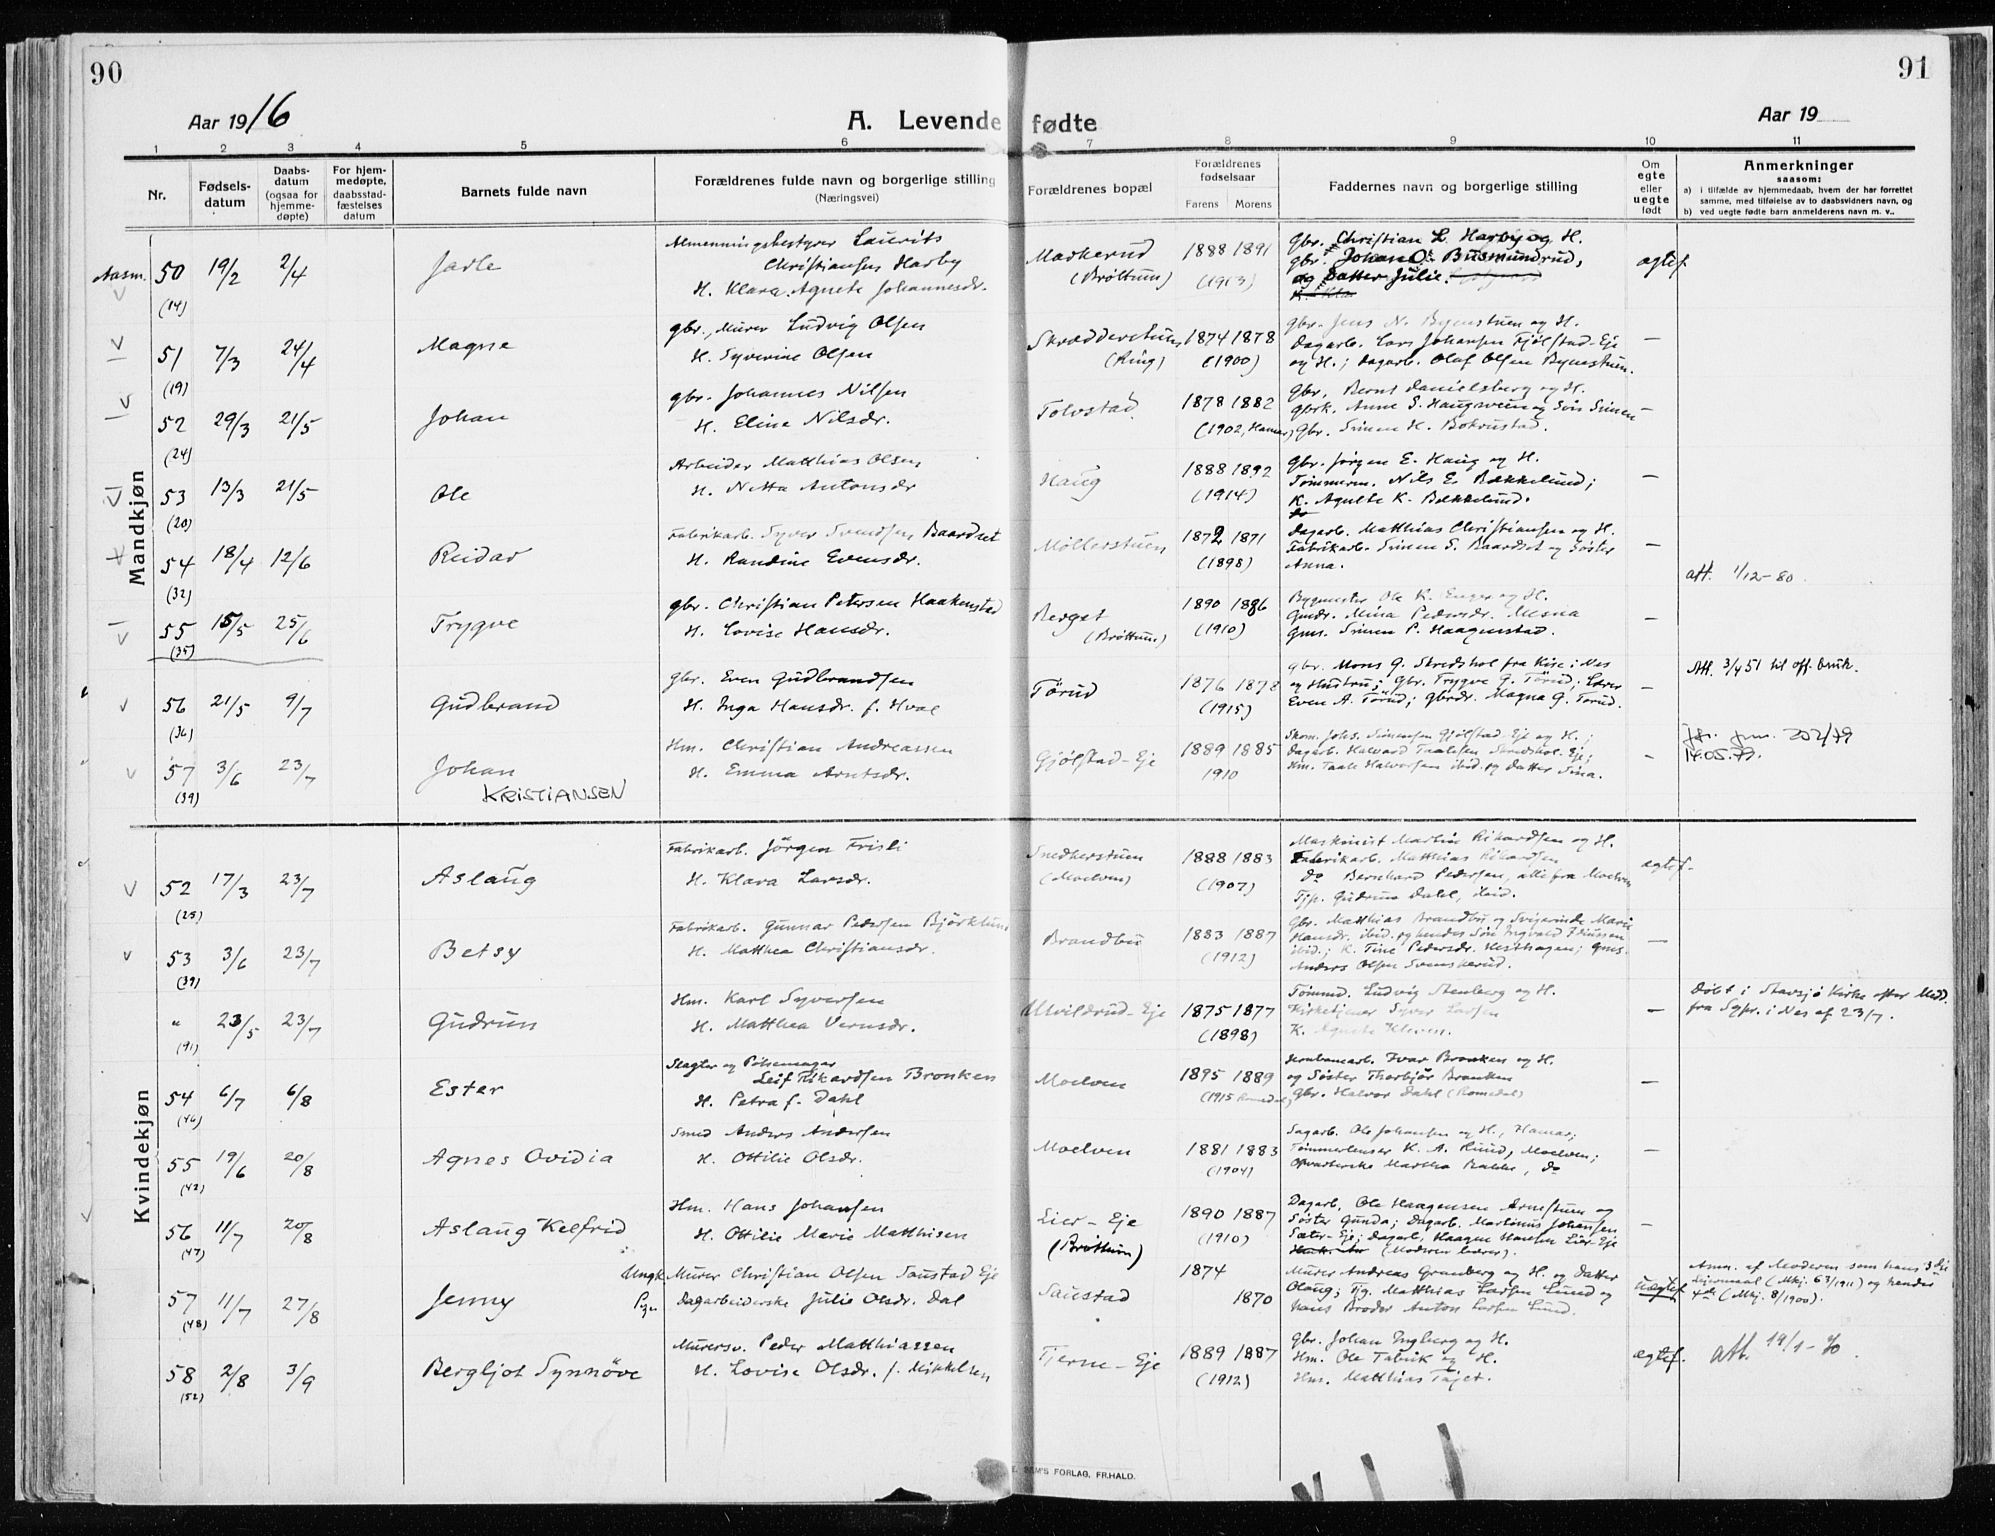 90
91
Aar 1916
A. Levende fødte
Aar 19
1 2 3 4 5 6 7 8 9 10 11
Nr.
Fødsels-
datum
Daabs-
datum
(ogsaa for
hjemme-
døpte)
For hjem-
medøpte,
daabsstad-
fæstelses
datum
Barnets fulde navn
Forældrenes fulde navn og borgerlige stilling
(Næringsvei)
Forældrenes bopæl
Forældrenes
fødselsaar
Farens Morens
Faddernes navn og borgerlige stilling
Om
egte
eller
uegte
født
Anmerkninger
saasom:
a) i tilfælde av hjemmedaab, hvem der har forrettet
samme, med tilføielse av to daabsvidners navn, og
b) ved uegte fødte barn anmelderens navn m. v..
Mandkjøn
Aasm. 50 19/2 2/4 Jarle
(14)
Almenningsbestyrer Laurits
Christiansen Harby
H. Klara Agnete Johannesdr.
(Brøttum)
1888 1891
(1913)
Gbr. Christian L. Harby og H.
gbr. Johan O. Busmundrud,
og Datter Julie.
ægtef.
51 7/3 24/4 Magne
(19)
gbr., Murer Ludvig Olsen
H. Syverine Olsen
Skrædderstuen
(Ring)
1874 1878
(1900)
Gbr. Jens N. Byenstuen og H.
Dagarb. Lars Johansen Fjølstad-Eje
og H.; Dagarb. Olaf Olsen Byenstuen.
—
52 29/3 21/5 Johan
(24)
gbr. Johannes Nilsen
H. Eline Nilsdr.
Tolvstad
1878 1882
(1902, Hamar)
Gbr. Bernt Danielsberg og H.
Gbrk. Anne S. Haugsveen og Søn Simen
Gbr. Simen H. Bokrustad.
—
53 13/3 21/5 Ole
(20)
Arbeider Matthias Olsen
H. Netta Antonsdr
Haug
1888 1892
(1914)
Gbr. Jørgen E. Haug og H.
Tømmerm. Nils E. Bækkelund;
K. Agnete K. Bækkelund.
—
54 18/4 12/6 Reidar
(32)
Fabrikarb. Syver Svendsen Baardset
H. Randine Evensdr.
Møllerstuen
1872 1871
(1898)
Dagarb. Matthias Christiansen og H.
Fabrikarb. Simen S. Baardset og Søster
Anna.
—
att. 1/12-80
55 15/5 25/6 Trygve
(35)
gbr. Christian Petersen Haakenstad
H. Lovise Hansdr.
Berget
(Brøttum)
1890 1886
(1910)
Bygmester Ole K. Enger og H.
Gmdr. Mina Pedersdr. Mesna
Gms. Simen P. Haagenstad.
—
56 21/5 9/7 Gudbrand
(36)
gbr. Even Gudbrandsen
H. Inga Hansdr. f. Hval
Tørud
1876 1878
(1915)
gbr. Mons G. Skredshol fra Kise i Nes
og Hustru; Gbr. Trygve G. Tørud; Lærer
Even A. Tørud; gbrdr. Magna G. Tørud.
—
Att. 3/4 51 til off. bruk.
57 3/6 23/7 Johan
KRISTIANSEN
(39)
Hm. Christian Andreassen
H. Emma Arntsdr.
Gjølstad-Eje
1889 1885
1910
Skom. Johs. Simensen Gjølstad-Eje og H.;
Dagarb. Halvard Taalesen Skredshol-Eje;
Hm. Taale Halvorsen ibid. og Datter Sina.
-
jfr. jnr. 202/79
14.05.79.
Kvindekjøn
52 17/3 23/7 Aslaug
(25)
Fabrikarb. Jörgen Frisli
H. Klara Larsdr.
Snedkerstuen
(Moelven)
1888 1883
(1907)
Maskinist Martin Rikardsen og H.
Fabrikarb. Matthias Rikardsen
Do Bernhard Pedersen, alle fra Moelven
Tjp. Gudrun Dahl, ibid.
ægtef.
53 3/6 23/7 Betsy
(39)
Fabrikarb. Gunnar Pedersen Björklund
H. Matthea Christiansdr.
Brandbu
1883 1887
(1912)
Gbr. Matthias Brandbu og Svigerinde Marie
Hansdr. ibid. og hendes Søn Ingvald
ibid.; K. Tine Pedersdr. Hesthagen; gms.
Anders Olsen Svenskerud.
—
" 23/5 23/7 Gudrun
(91)
Hm. Karl Syversen
H. Matthea Vernsdr.
Alvildrud-Eje
1875 1877
(1898)
Tømmd. Ludvig Stenberg og H.
Kirketjener Syver Larsen
K. Agnete Kleven.
—
Døbt i Stavsjø Kirke efter Medd.
fra Sgpr. i Nes af 23/7.
54 6/7 6/8 Ester
(46)
Slagter og Pølsemager
Leif Rikardsen Bronken
H. Petra f. Dahl
Moelven
1895 1889
(1915 Romedal)
Ivar Bronken og H.
og Søster Thorbjør Bronken
Gbr. Halvor Dahl (Romedal)
—
55 19/6 20/8 Agnes Ovidia
(42)
Smed Anders Andersen
H. Ottilie Olsdr.
Moelven
1881 1883
(1904)
Sagarb. Ole Johansen og H., Hamar;
Tømmerlenser K. A. Lund, Moelven;
Martha Bakke, do
—
56 11/7 20/8 Aslaug Kelfrid
(47)
Hm. Hans Johansen
H. Ottilie Marie Matthisen
Lier-Eje
(Brøttum)
1890 1887
(1910)
Dagarb. Ole Haagensen Arnestuen og
Søster Gunda; Dagarb. Martinus Johansen
Sæter-Eje; Dagarb. Haagen Hansen Lier-Eje
(Moderen bærer).
-
57 11/7 27/8 Jenny
(48)
Ungk. Murer Christian Olsen Saustad Eje
Pige Dagarbeiderske Julie Olsdr. Dal
Saustad
1874
1870
Murer Andreas Granberg og H. og Datter
Olaug; Tjg. Matthias Larsen Lund og
hans Broder Anton Larsen Lund.
uægtef.
Anm. af Moderen som hans 3die
Leiermaal (Mkj. 63/1911) og hendes
4de (Mkj. 8/1900).
58 2/8 3/9 Bergljot Synnöve
(52)
Murersv. Peder Matthiassen
H. Lovise Olsdr. f. Mikkelsen
Tjerne-Eje
1889 1887
(1912)
Gbr. Johan Ingberg og H.
Hm. Ole Fabrik og H.
Hm. Matthias Tajet.
ægtef.
att. 19/1-70.
FORLAG, FR.HALD.